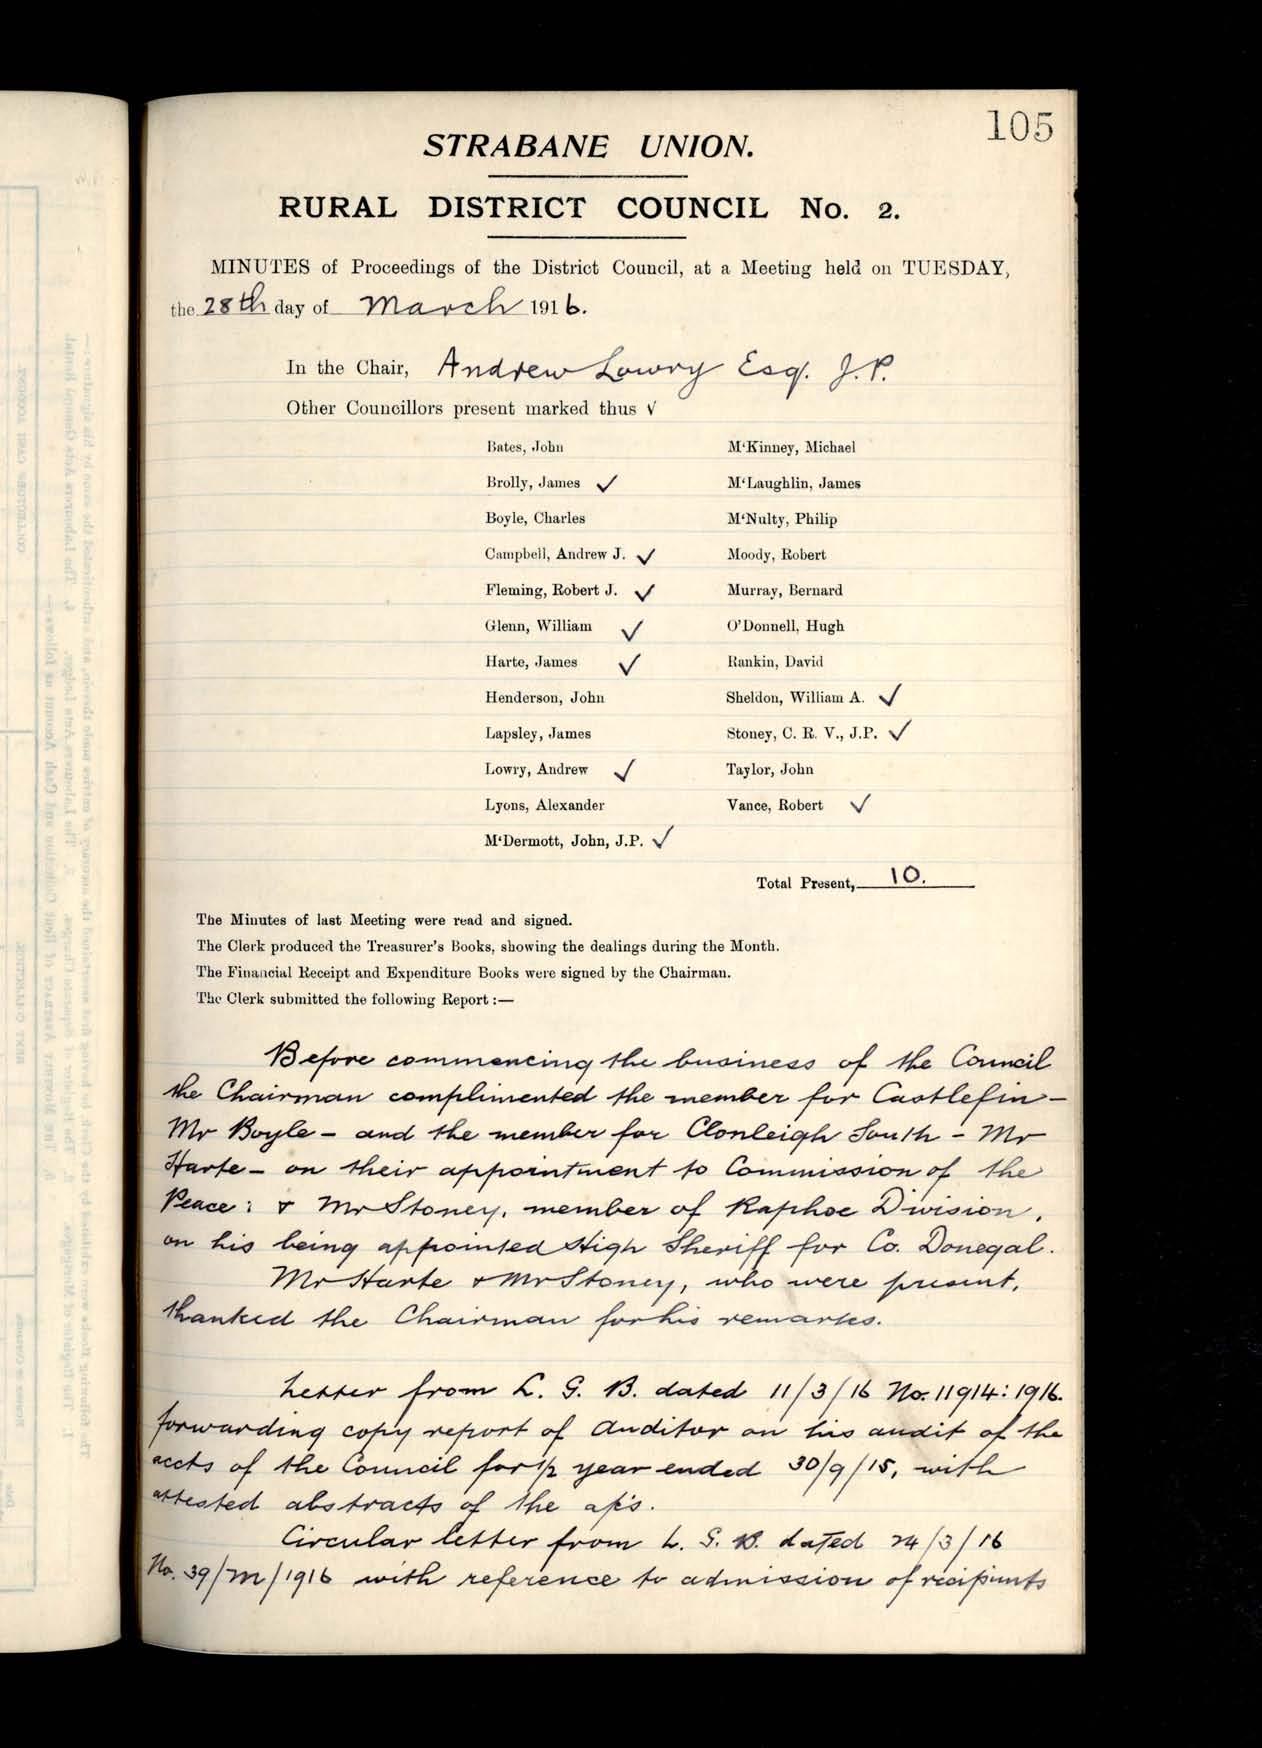 105
STRABANE UNION.
RURAL DISTRICT COUNCIL No. 2.
MINUTES of Proceedings of the District Council, at a Meeting held on TUESDAY,
the 28th day of March 1916.
In the Chair, Andrew Lowry Esq. J.P.
Other Councillors present marked thus √
Bates, John M'Kinney, Michael
Brolly, James ✓ M'Laughlin, James
Boyle, Charles M'Nulty, Philip
Campbell, Andrew J. ✓ Moody, Robert
Fleming, Robert J. ✓ Murray, Bernard
Glenn, William ✓ O'Donnell, Hugh
Harte, James ✓ Rankin, David
Henderson, John Sheldon, William A. ✓
Lapsley, James Stoney, C. R. V., J.P. ✓
Lowry, Andrew ✓ Taylor, John
Lyons, Alexander Vance, Robert ✓
M'Dermott, John, J.P. ✓
Total Present, 10.
The Minutes of last Meeting were read and signed.
The Clerk produced the Treasurer's Books, showing the dealings during the Month.
The Financial Receipt and Expenditure Books were signed by the Chairman.
The Clerk submitted the following Report :—
Before commencing the business of the Council
the Chairman complimented the member for Castlefin -
Mr Boyle - and the member for Clonleigh South - Mr
Harte - on their appointment to Commission of the
Peace: & Mr Stoney, member of Raphoe Division,
on his being appointed High Sheriff for Co. Donegal.
Mr Harte & Mr Stoney, who were present,
thanked the Chairman for his remarks.
Letter from L. G. B. dated 11/3/16 No. 11914:1916.
forwarding copy report of Auditor on his audit of the
accts of the Council for ½ year ended 30/9/15, with
attested abstracts of the
Circular letter from L. G. B. dated 24/3/16
No. 39/M/1916 with reference to admission of recipients